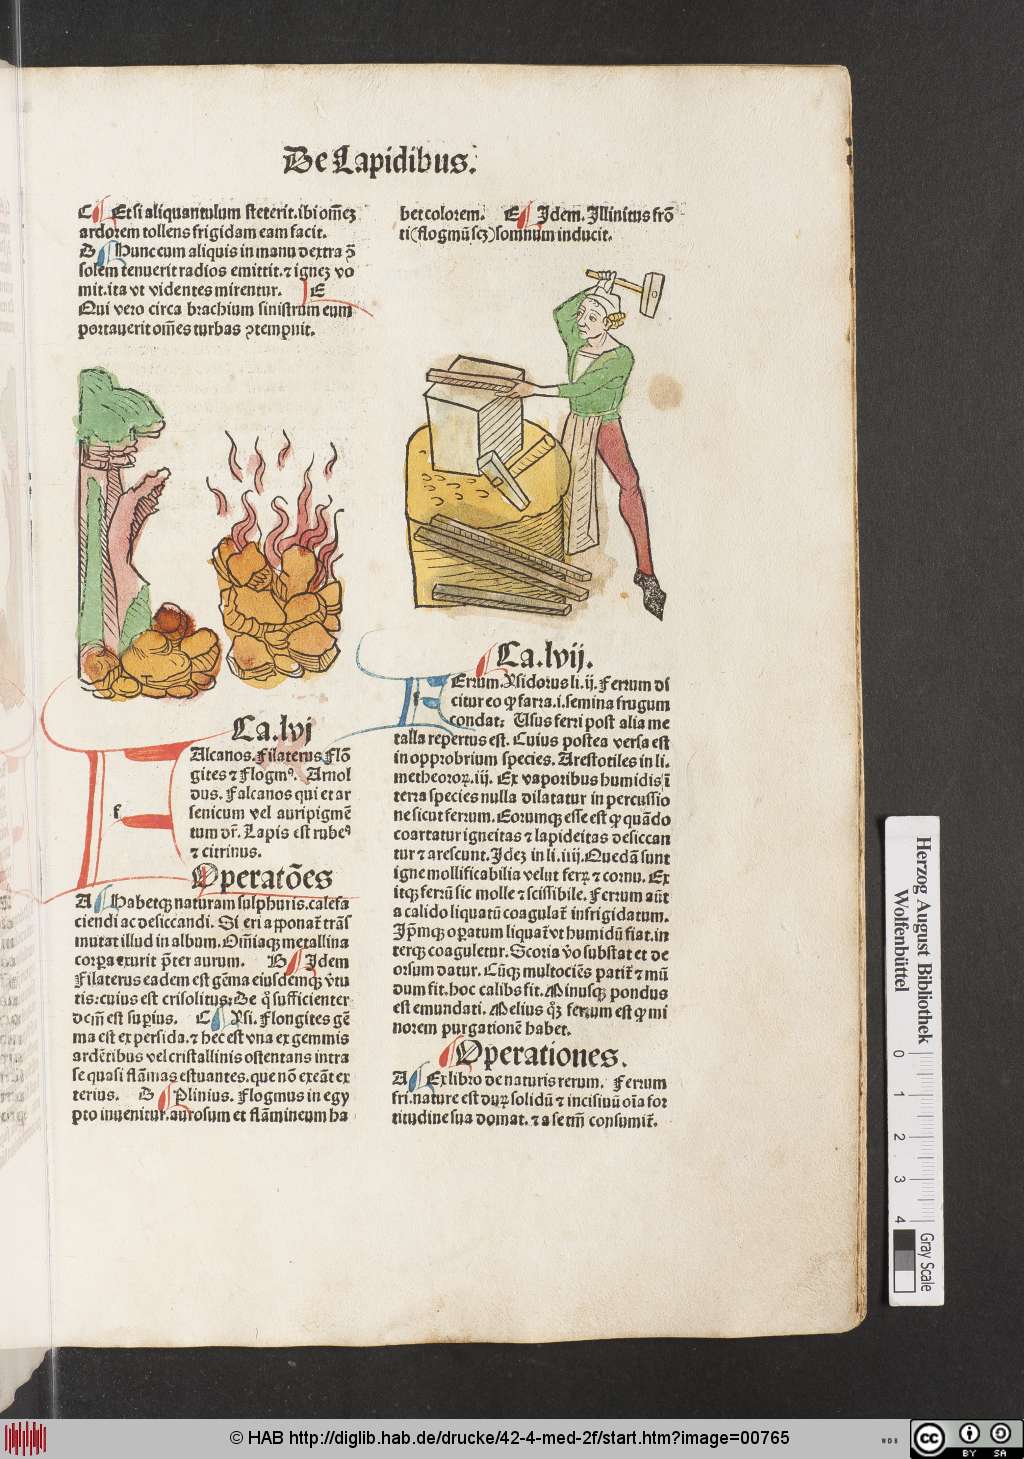 De Lapidibus.
C Et si aliquantulum steterit. ibi om̄eꝫ
ardorem tollens frigidam eam facit.
D Hunc eum aliquis in manu dextra ꝯ̄
solem tenuerit radios emittit. ⁊ igneꝫ vo
mit. ita vt videntes mirentur. E
Qui vero circa brachium sinistrum eum
portauerit om̄es turbas ꝯtempnit.
Ca. lvj
f
Alcanos. Filaterus Flō
gites ⁊ Flogmꝰ. Arnol
dus. Falcanos qui et ar
senicum vel auripigmē
tum dr̄. Lapis est rubeꝰ
⁊ citrinus.
Operatōes
A Habetqꝫ naturam sulphuris. calefa
ciendi ac desiccandi. Si eri apponat᷑ trās
mutat illud in album. Om̄iaqꝫ metallina
corpora exurit p̄ter aurum. B Idem
Filaterus eadem est gēma eiusdemqꝫ v̓tu
tis: cuius est crisolitus: De q̄ sufficienter
dcm̄ est superius. C Ysi. Flongites gē
ma est ex persida. ⁊ hec est vna ex gemmis
ardētibus vel cristallinis ostentans intra
se quasi flāmas estuantes. que nō exeāt ex
terius. D Plinius. Flogmus in egy
pto inuenitur. aurosum et flāmineum ha
bet colorem. E Idem. Illinitus frō
ti (flogmū scꝫ) somnum inducit.
Ca. lvij.
f
Errum. Ysidorus li. ij. Ferrum di
citur eo ꝙ farra .i. semina frugum
condat: Usus ferri post alia me
talla repertus est. Cuius postea versa est
in opprobrium species. Arestotiles in li.
metheoroꝝ. iij. Ex vaporibus humidis ī
terra species nulla dilatatur in percussio
ne sicut ferrum. Eorumqꝫ esse est ꝙ quādo
coartatur igneitas ⁊ lapideitas desiccan
tur ⁊ arescunt. Ideꝫ in li. iiij. Quedā sunt
igne mollificabilia velut ferꝝ ⁊ cornu. Ex
itqꝫ ferrū sic molle ⁊ scissibile. Ferrum aūt
a calido liquatū coagulat᷑ infrigidatum.
Ip̄mqꝫ operatum liquat᷑ vt humidū fiat. in
terqꝫ coaguletur. Scoria v̓o substat et de
orsum datur. Cūqꝫ multociēs patit᷑ ⁊ mū
dum fit. hoc calibs fit. Minusqꝫ pondus
est emundati. Melius qꝫ ferrum est ꝙ mi
norem purgationē habet.
Operationes.
A Ex libro de naturis rerum. Ferrum
fri. nature est duꝝ solidū ⁊ incisiuū oīa for
titudine sua domat. ⁊ a se tm̄ consumit᷑.
Herzog August Bibliothek
Wolfenbüttel
0 1 2 3 4
Gray Scale
© HAB http://diglib.hab.de/drucke/42-4-med-2f/start.htm?image=00765
WDB
cc BY SA